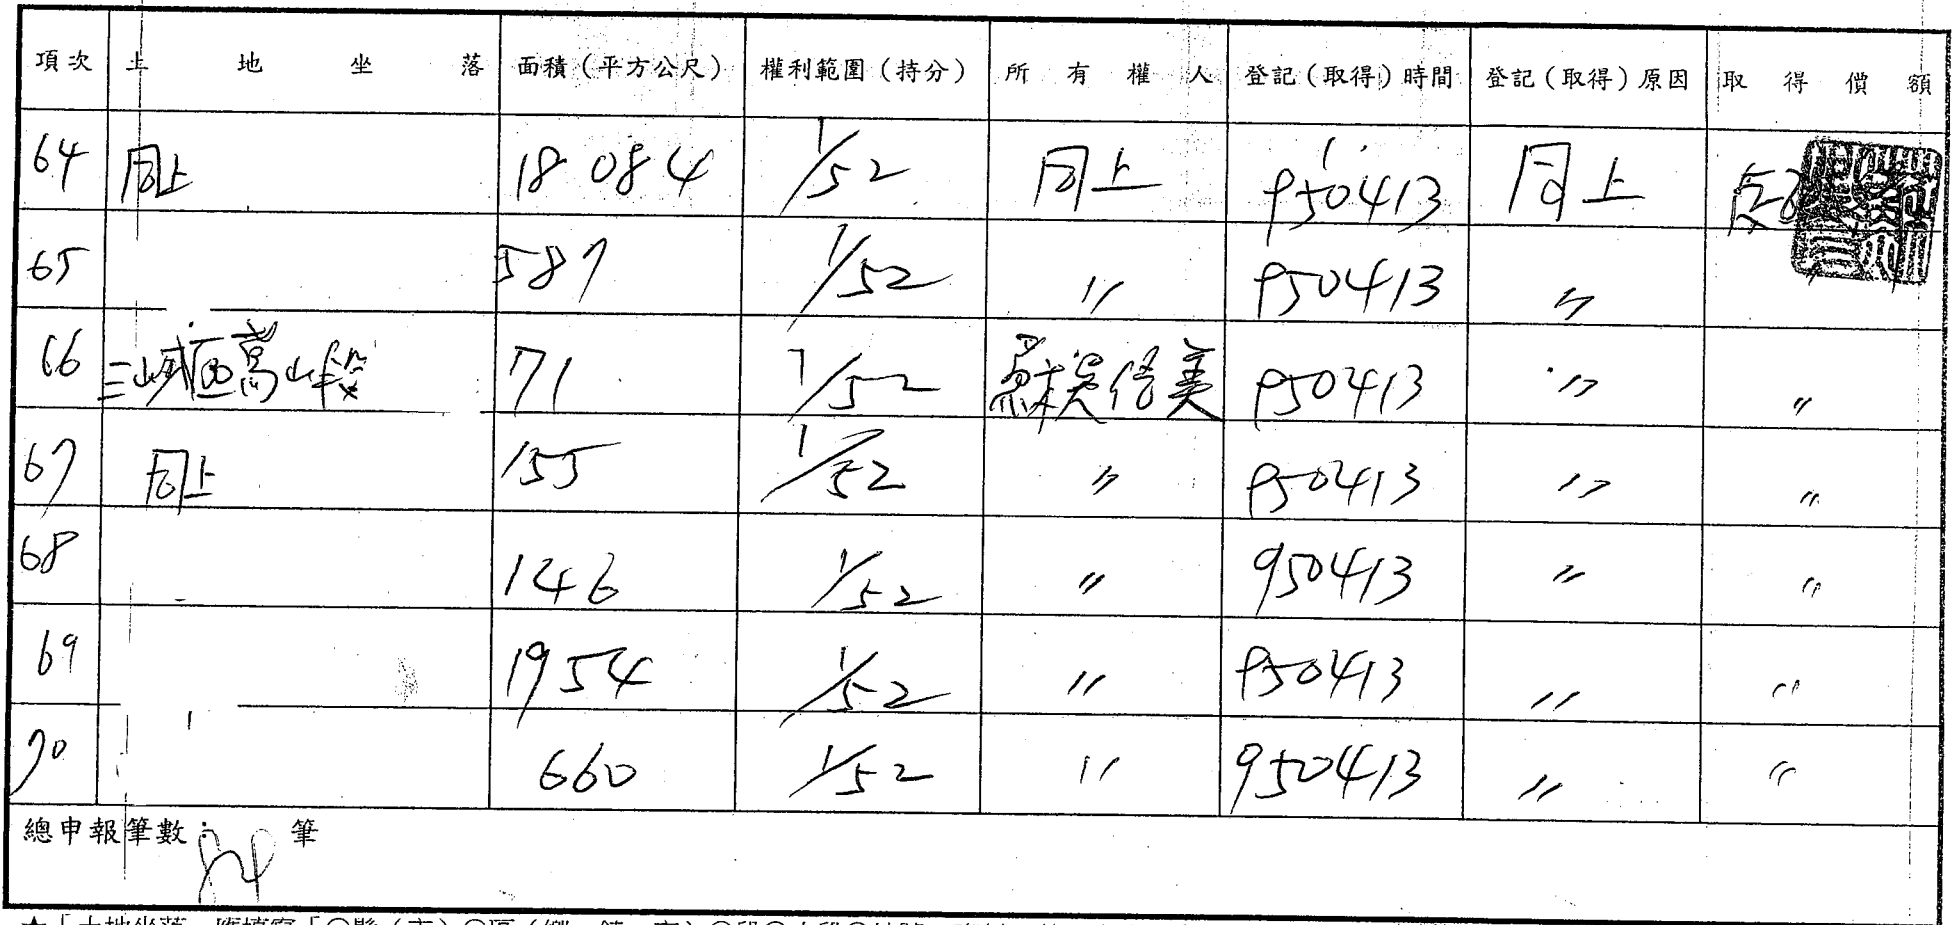 項次 土地坐落 面積（平方公尺） 權利範圍（持分） 所有權人 登記（取得）時間 登記（取得）原因 取得價額
64 同上 18084 1/52 同上 950413 同上
65 587 1/52 〃 950413 〃 〃
66 三峽區嵩山段 71 1/52 蘇吳信美 950413 〃 〃
67 同上 155 1/52 〃 950413 〃 〃
68 146 1/52 〃 950413 〃 〃
69 1954 1/52 〃 950413 〃 〃
70 660 1/52 〃 950413 〃 〃
總申報筆數： 筆